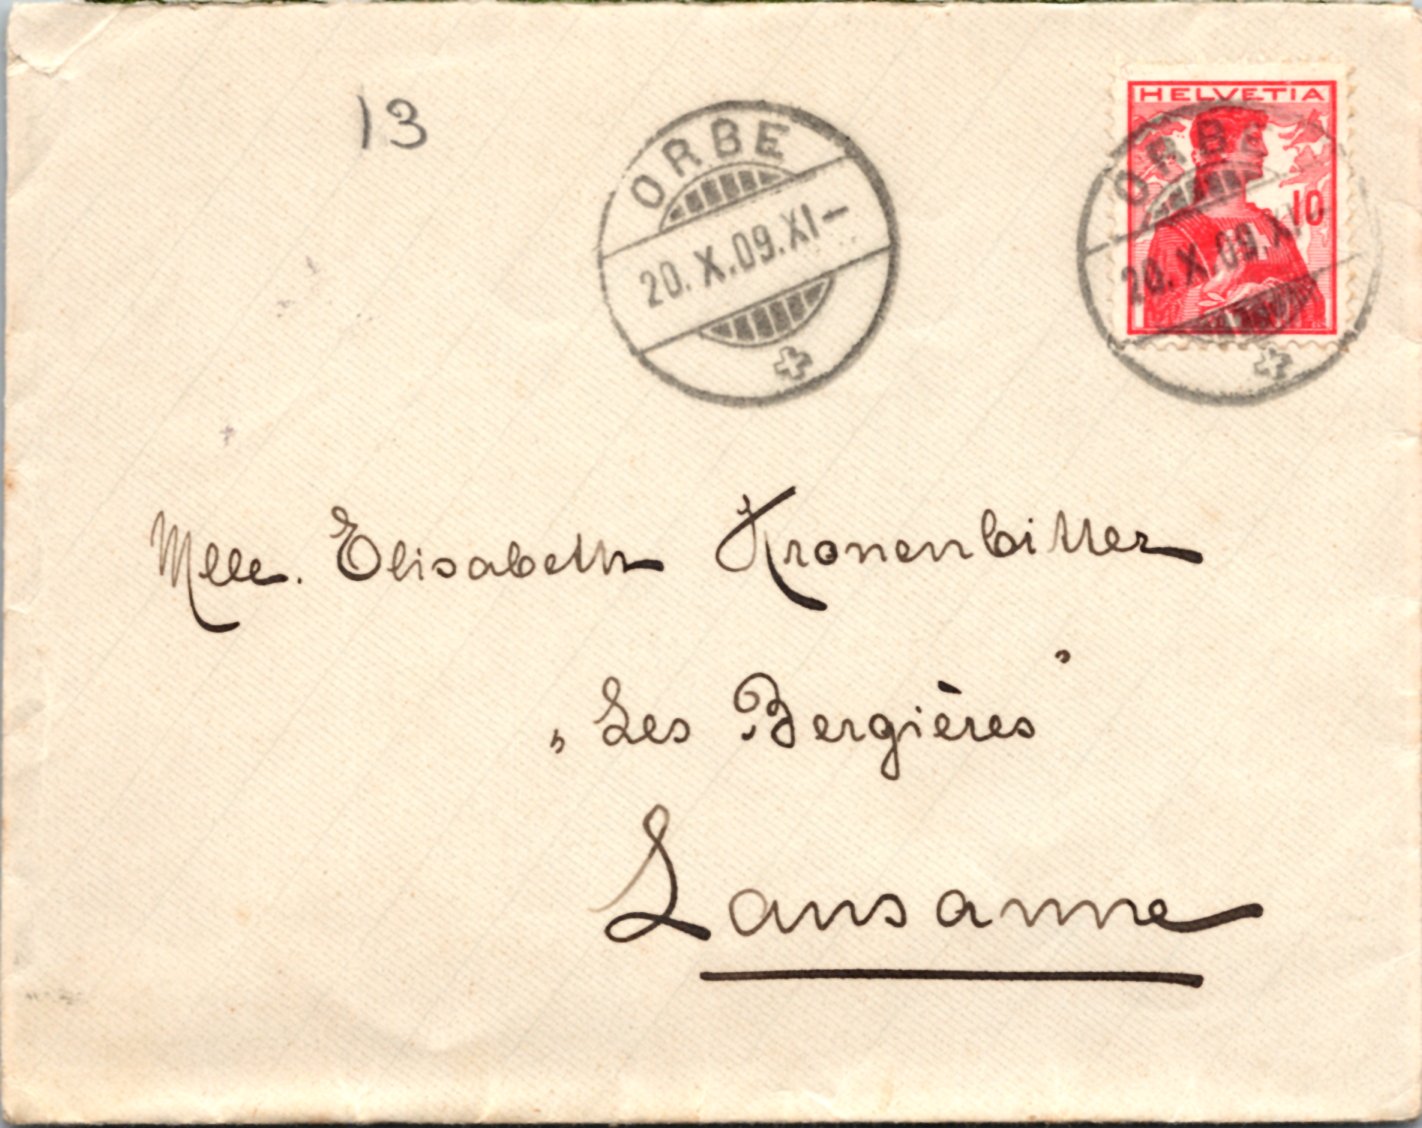 13
ORBE
20.X.09.XI–
HELVETIA
10
ORBE
20.X.09.XI
Mlle. Elisabeth Kronenbitter
„Les Bergières”
Lausanne